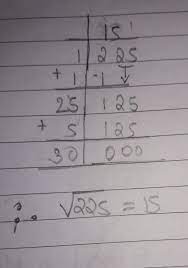 15
1 | 225
+ 1 | -1 ↓
25 | 125
+ 5 | 125
30 | 000
∴ √225 = 15